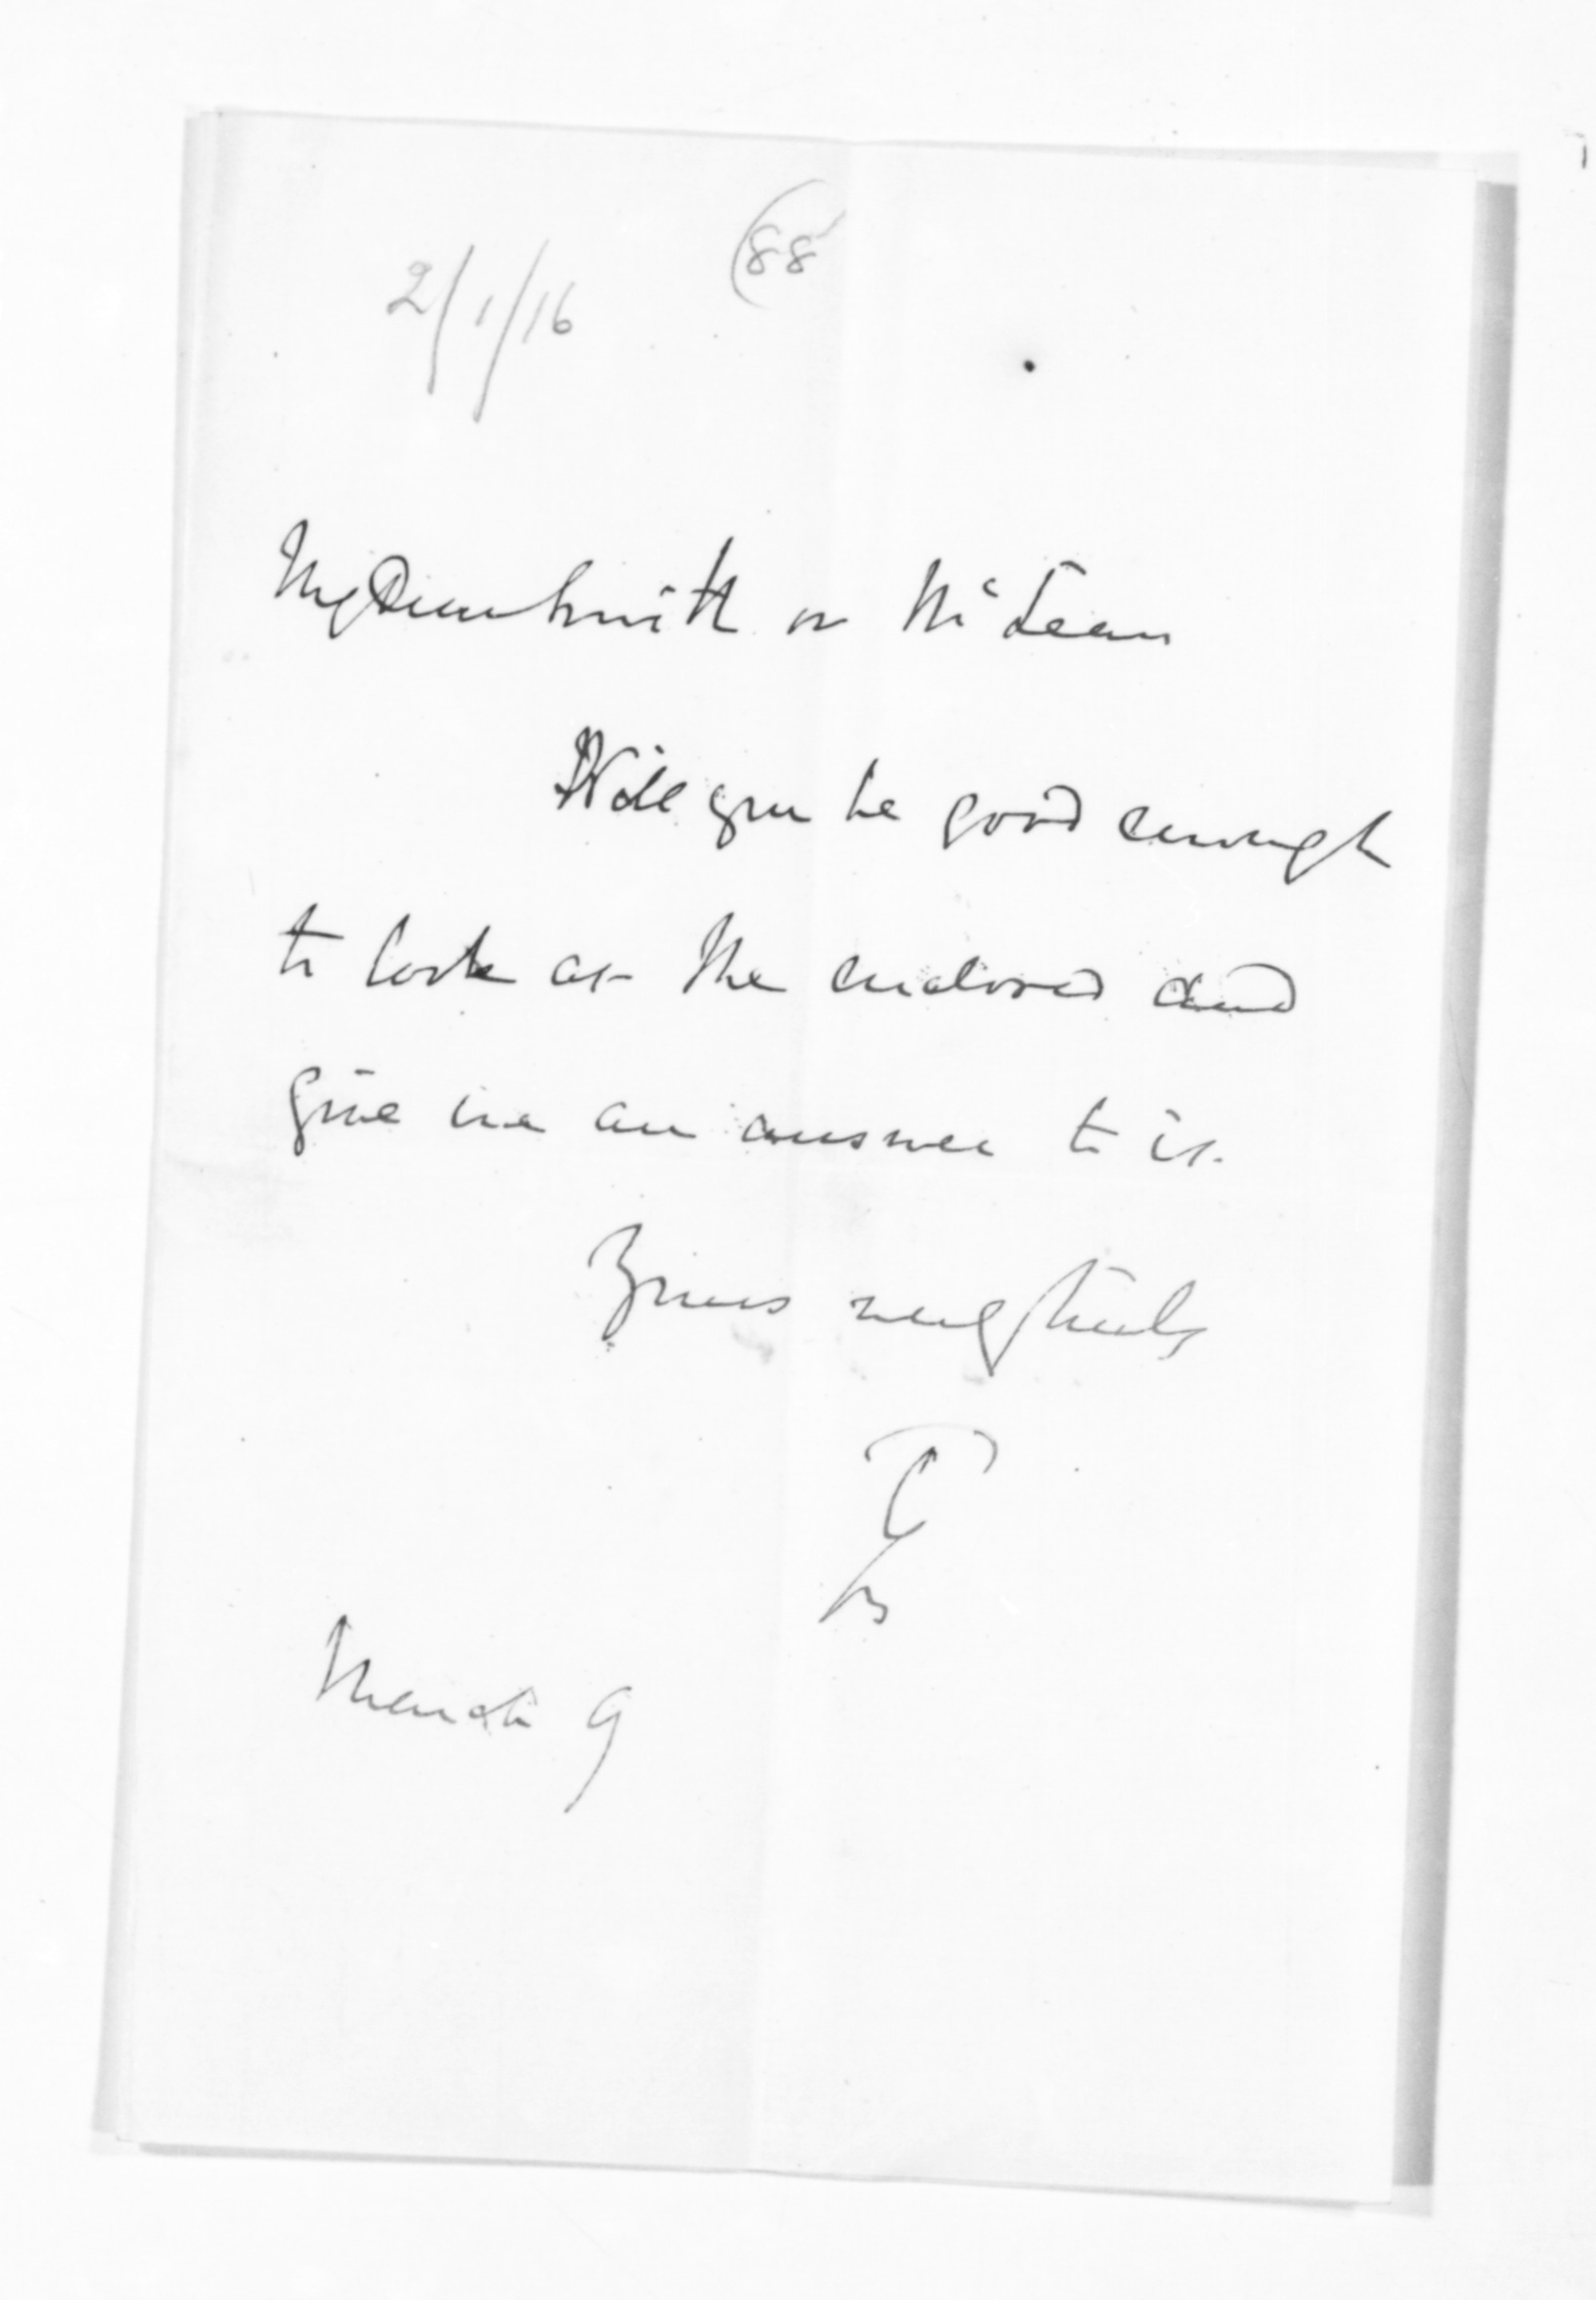 88
2/1/16
My Dear Smith or McLean
Will you be good enough
to look at the enclosed and
give me an answer to it.
Yours very truly
March 9